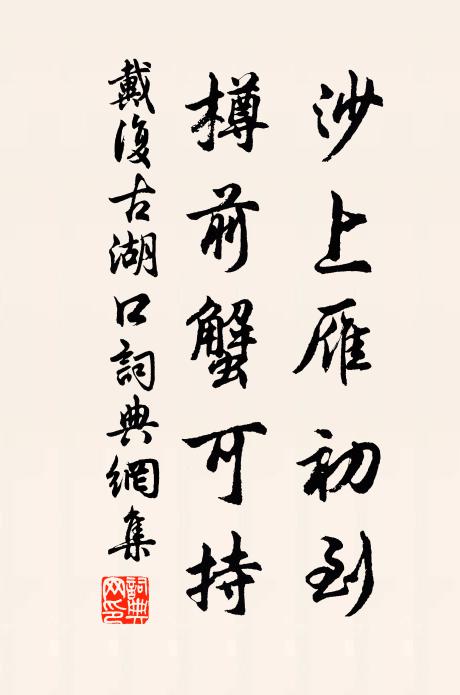 沙上雁初到
樽前蟹可持
戴復古湖口詞典網集
詞典網印